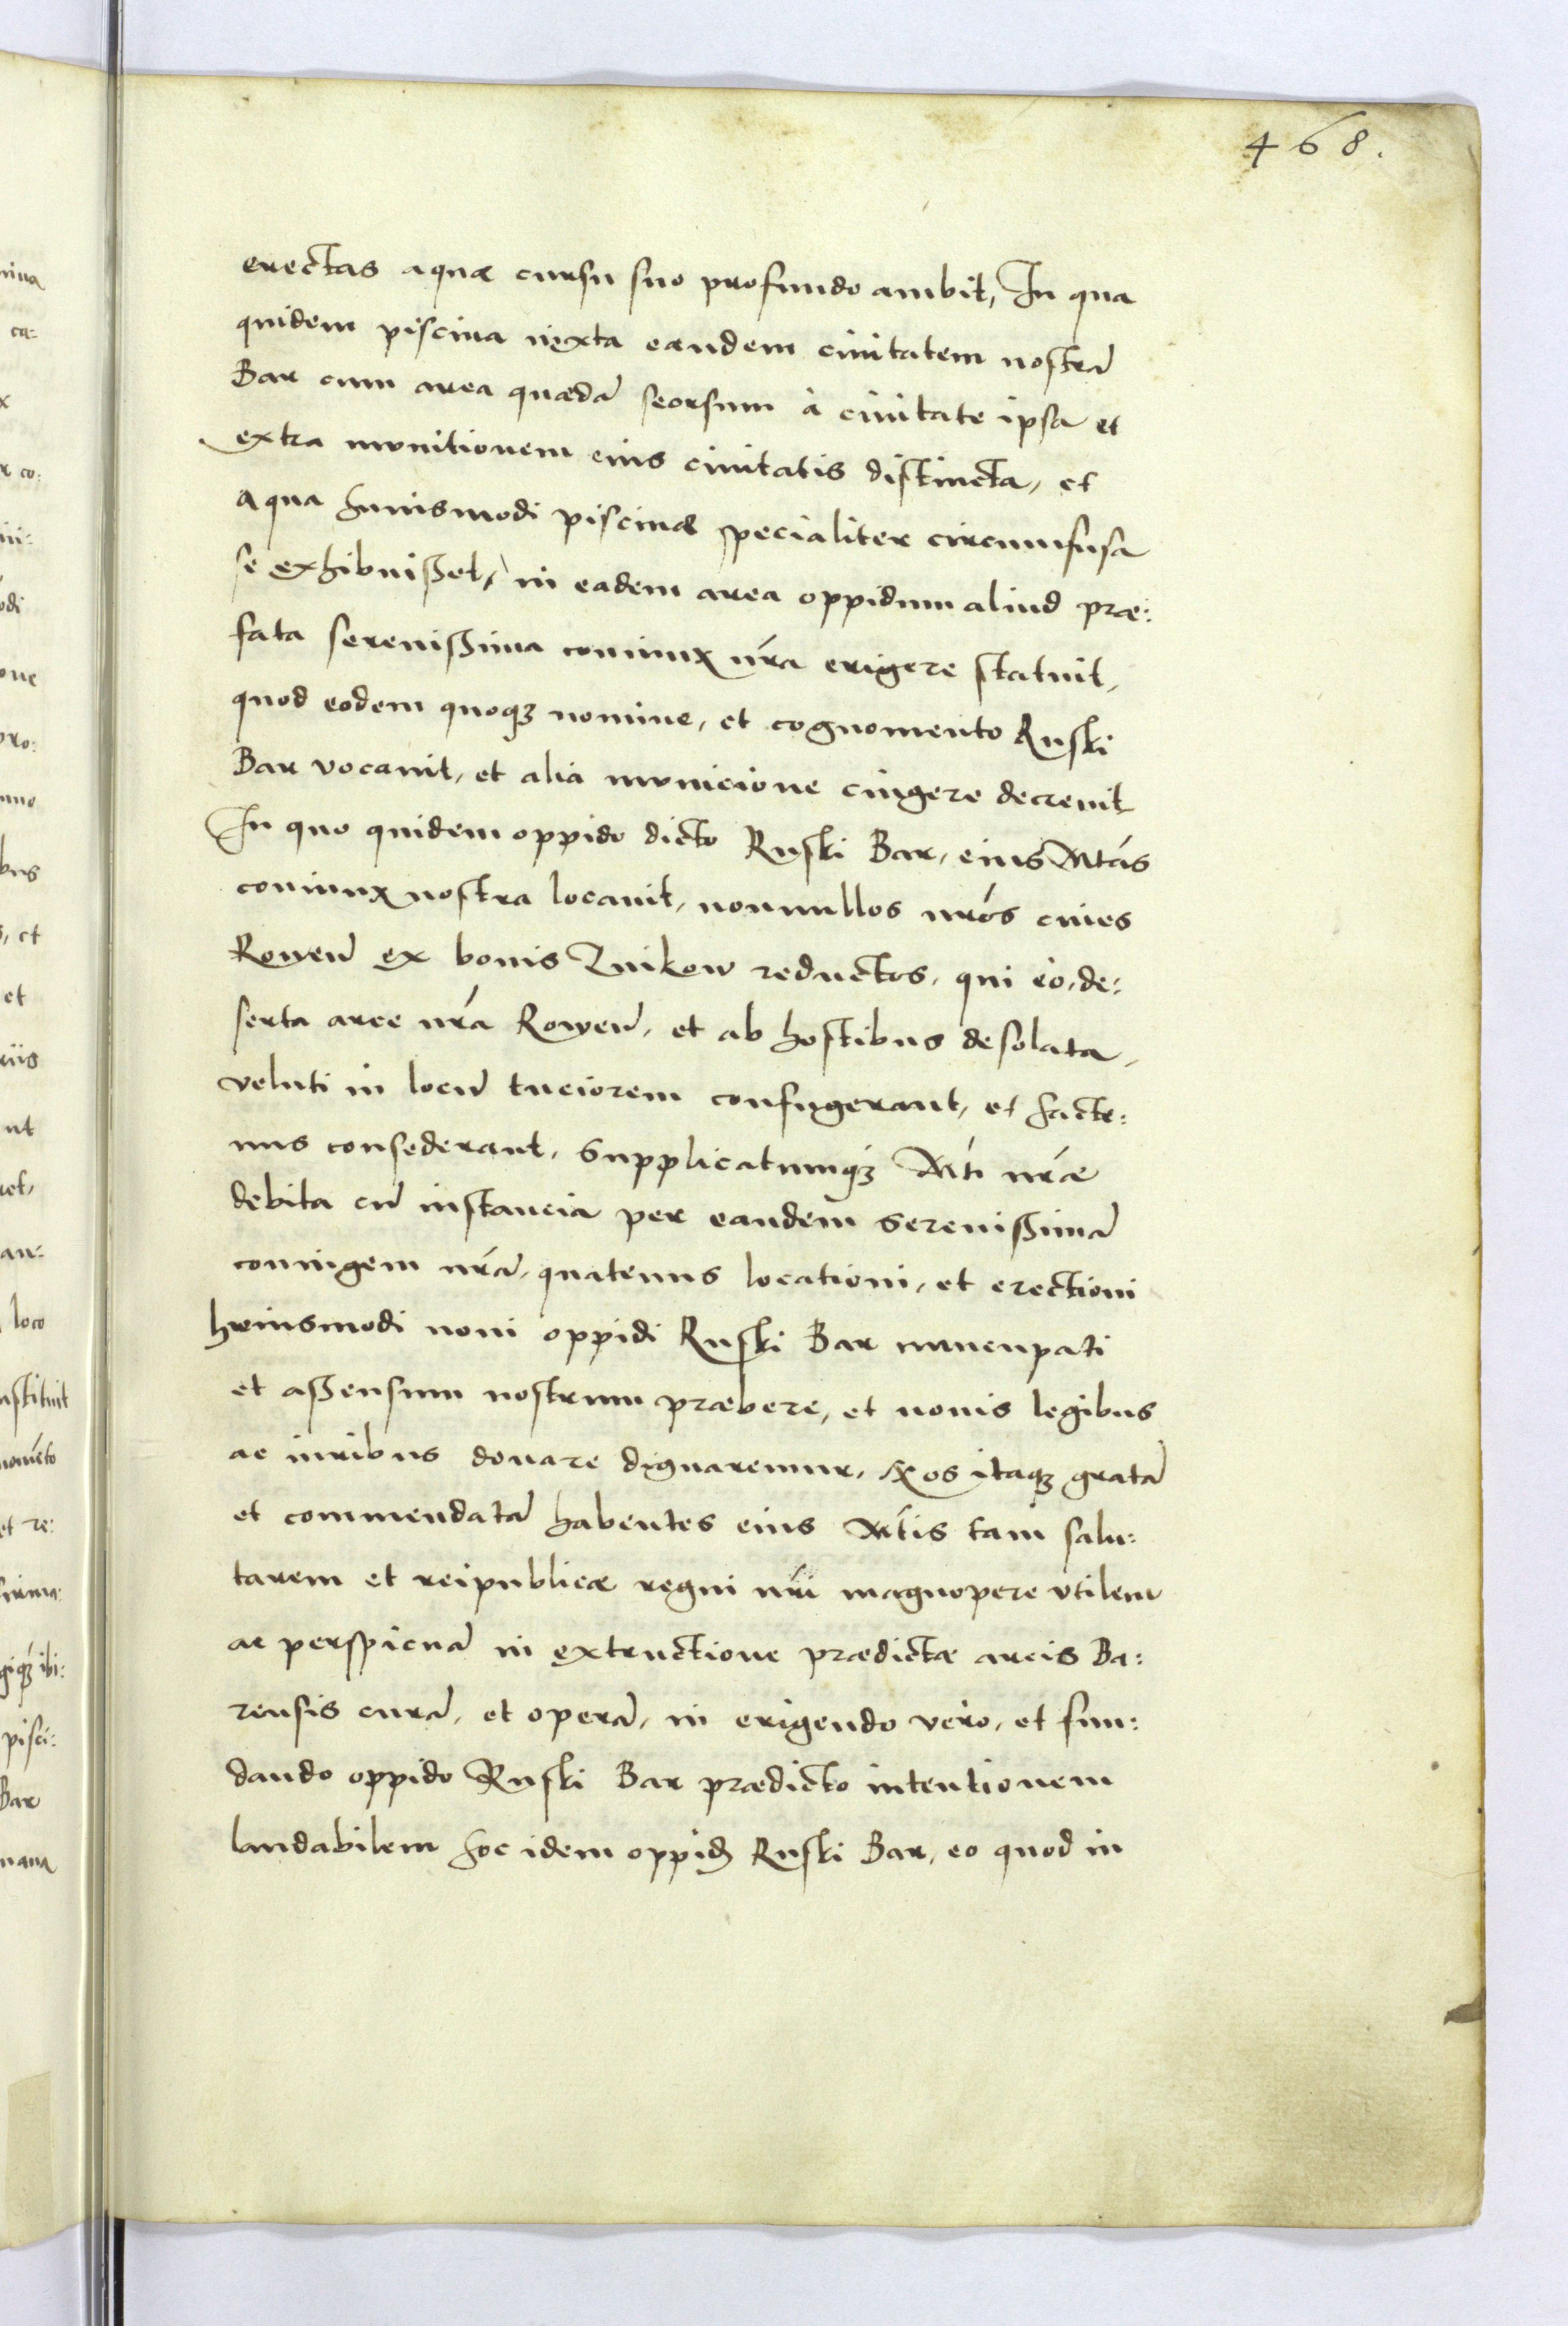 468.
erectas aquæ cursu suo profundo ambit, In qua
quidem piscina iuxta eandem ciuitatem nostrā
Bar cum area quædā seorsum à ciuitate ipsa et
extra munitionem eius ciuitatis distincta, et
aqua huiusmodi piscinæ specialiter circumfusa
se exhibuisset, in eadem area oppidum aliud præ:
fata serenissima coniunx nr̃a erigere statuit,
quod eodem quoqʒ nomine, et cognomento Ruski
Bar vocauit, et alia municione cingere decreuit
In quo quidem oppido dicto Ruski Bar, eius Mtás
coniunx nostra locauit, nonnullos nr̃os ciues
Rowen̄ ex bonis Zinkow reductos, qui eò, de:
serta arce nr̃a Rowen̄, et ab hostibus desolata,
veluti in locū tuciorem confugerant, et hacte:
nus consederant, Supplicatumqʒ Mti nr̃æ
debita cū instancia per eandem serenissimā
coniugem nr̃ā, quatenus locationi, et erectioni
huiusmodi noui oppidi Ruski Bar nuncupati
et assensum nostrum præbere, et nouis legibus
ac iuribus donare dignaremur, Nos itaqʒ gratā
et commendatā habentes eius Mtis tam salu:
tarem et reipublicæ regni nr̃i magnopere vtilem
ac perspicuā in extructione prædictæ arcis Ba:
rensis curā, et operā, in erigendo vero, et fun:
dando oppido Ruski Bar prædicto intentionem
laudabilem hoc idem oppidū Ruski Bar, eo quod in